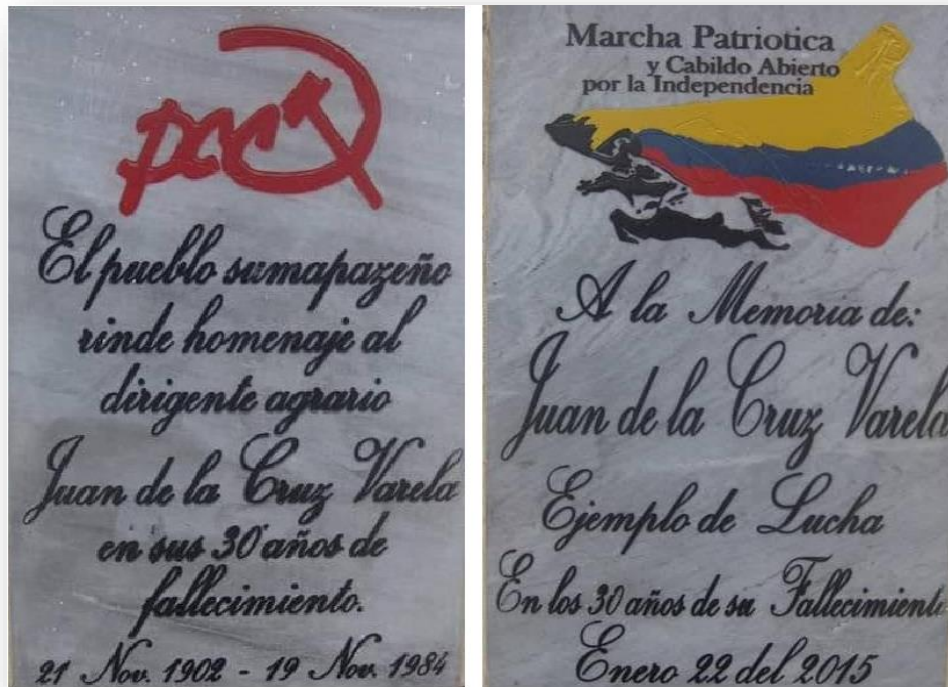 pcc
El pueblo sumapazeño
rinde homenaje al
dirigente agrario
Juan de la Cruz Varela
en sus 30 años de
fallecimiento.
21 Nov. 1902 - 19 Nov. 1984
Marcha Patriotica
y Cabildo Abierto
por la Independencia
A la Memoria de:
Juan de la Cruz Varela
Ejemplo de Lucha
En los 30 años de su Fallecimiento
Enero 22 del 2015